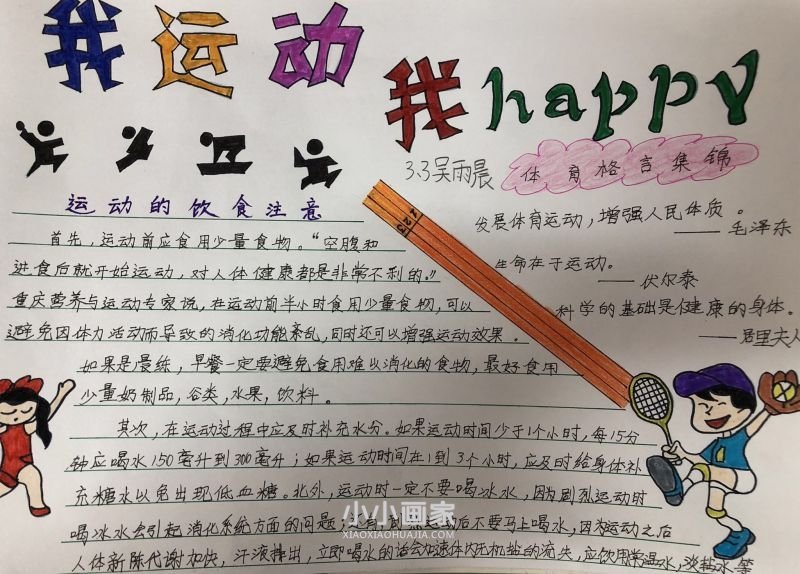 我运动
我happy
3.3吴雨晨
体育格言集锦
运动的饮食注意
首先，运动前应食用少量食物。“空腹和
进食后就开始运动，对人体健康都是非常不利的。”
重庆营养与运动专家说，在运动前半小时食用少量食物，可以
避免因体力活动而导致的消化功能紊乱，同时还可以增强运动效果。
如果是晨练，早餐一定要避免食用难以消化的食物，最好食用
少量奶制品，谷类，水果，饮料。
其次，在运动过程中应及时补充水分。如果运动时间少于1个小时，每15分
钟应喝水150毫升到300毫升；如果运动时间在1到3个小时，应及时给身体补
充糖水以免出现低血糖。北外，运动时一定不要喝冰水，因为剧烈运动时
喝冰水会引起消化系统方面的问题；还有运动后不要马上喝水，因为运动之后
人体新陈代谢加快，汗液排出，立即喝水的话会加速体内无机盐的流失，应饮用常温水，淡盐水等
发展体育运动，增强人民体质。
——毛泽东
生命在于运动。
——伏尔泰
科学的基础是健康的身体。
——居里夫人
123
小小画家
XIAOXIAOHUAJIA.COM